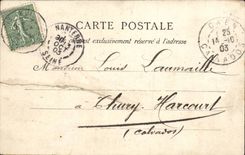 CARTE POSTALE
est exclusivement réservé à l'adresse
NANTERRE
SEINE
CAEN
CALVADOS
Monsieur Louis Laumaille
à Thury Harcourt
(Calvados)